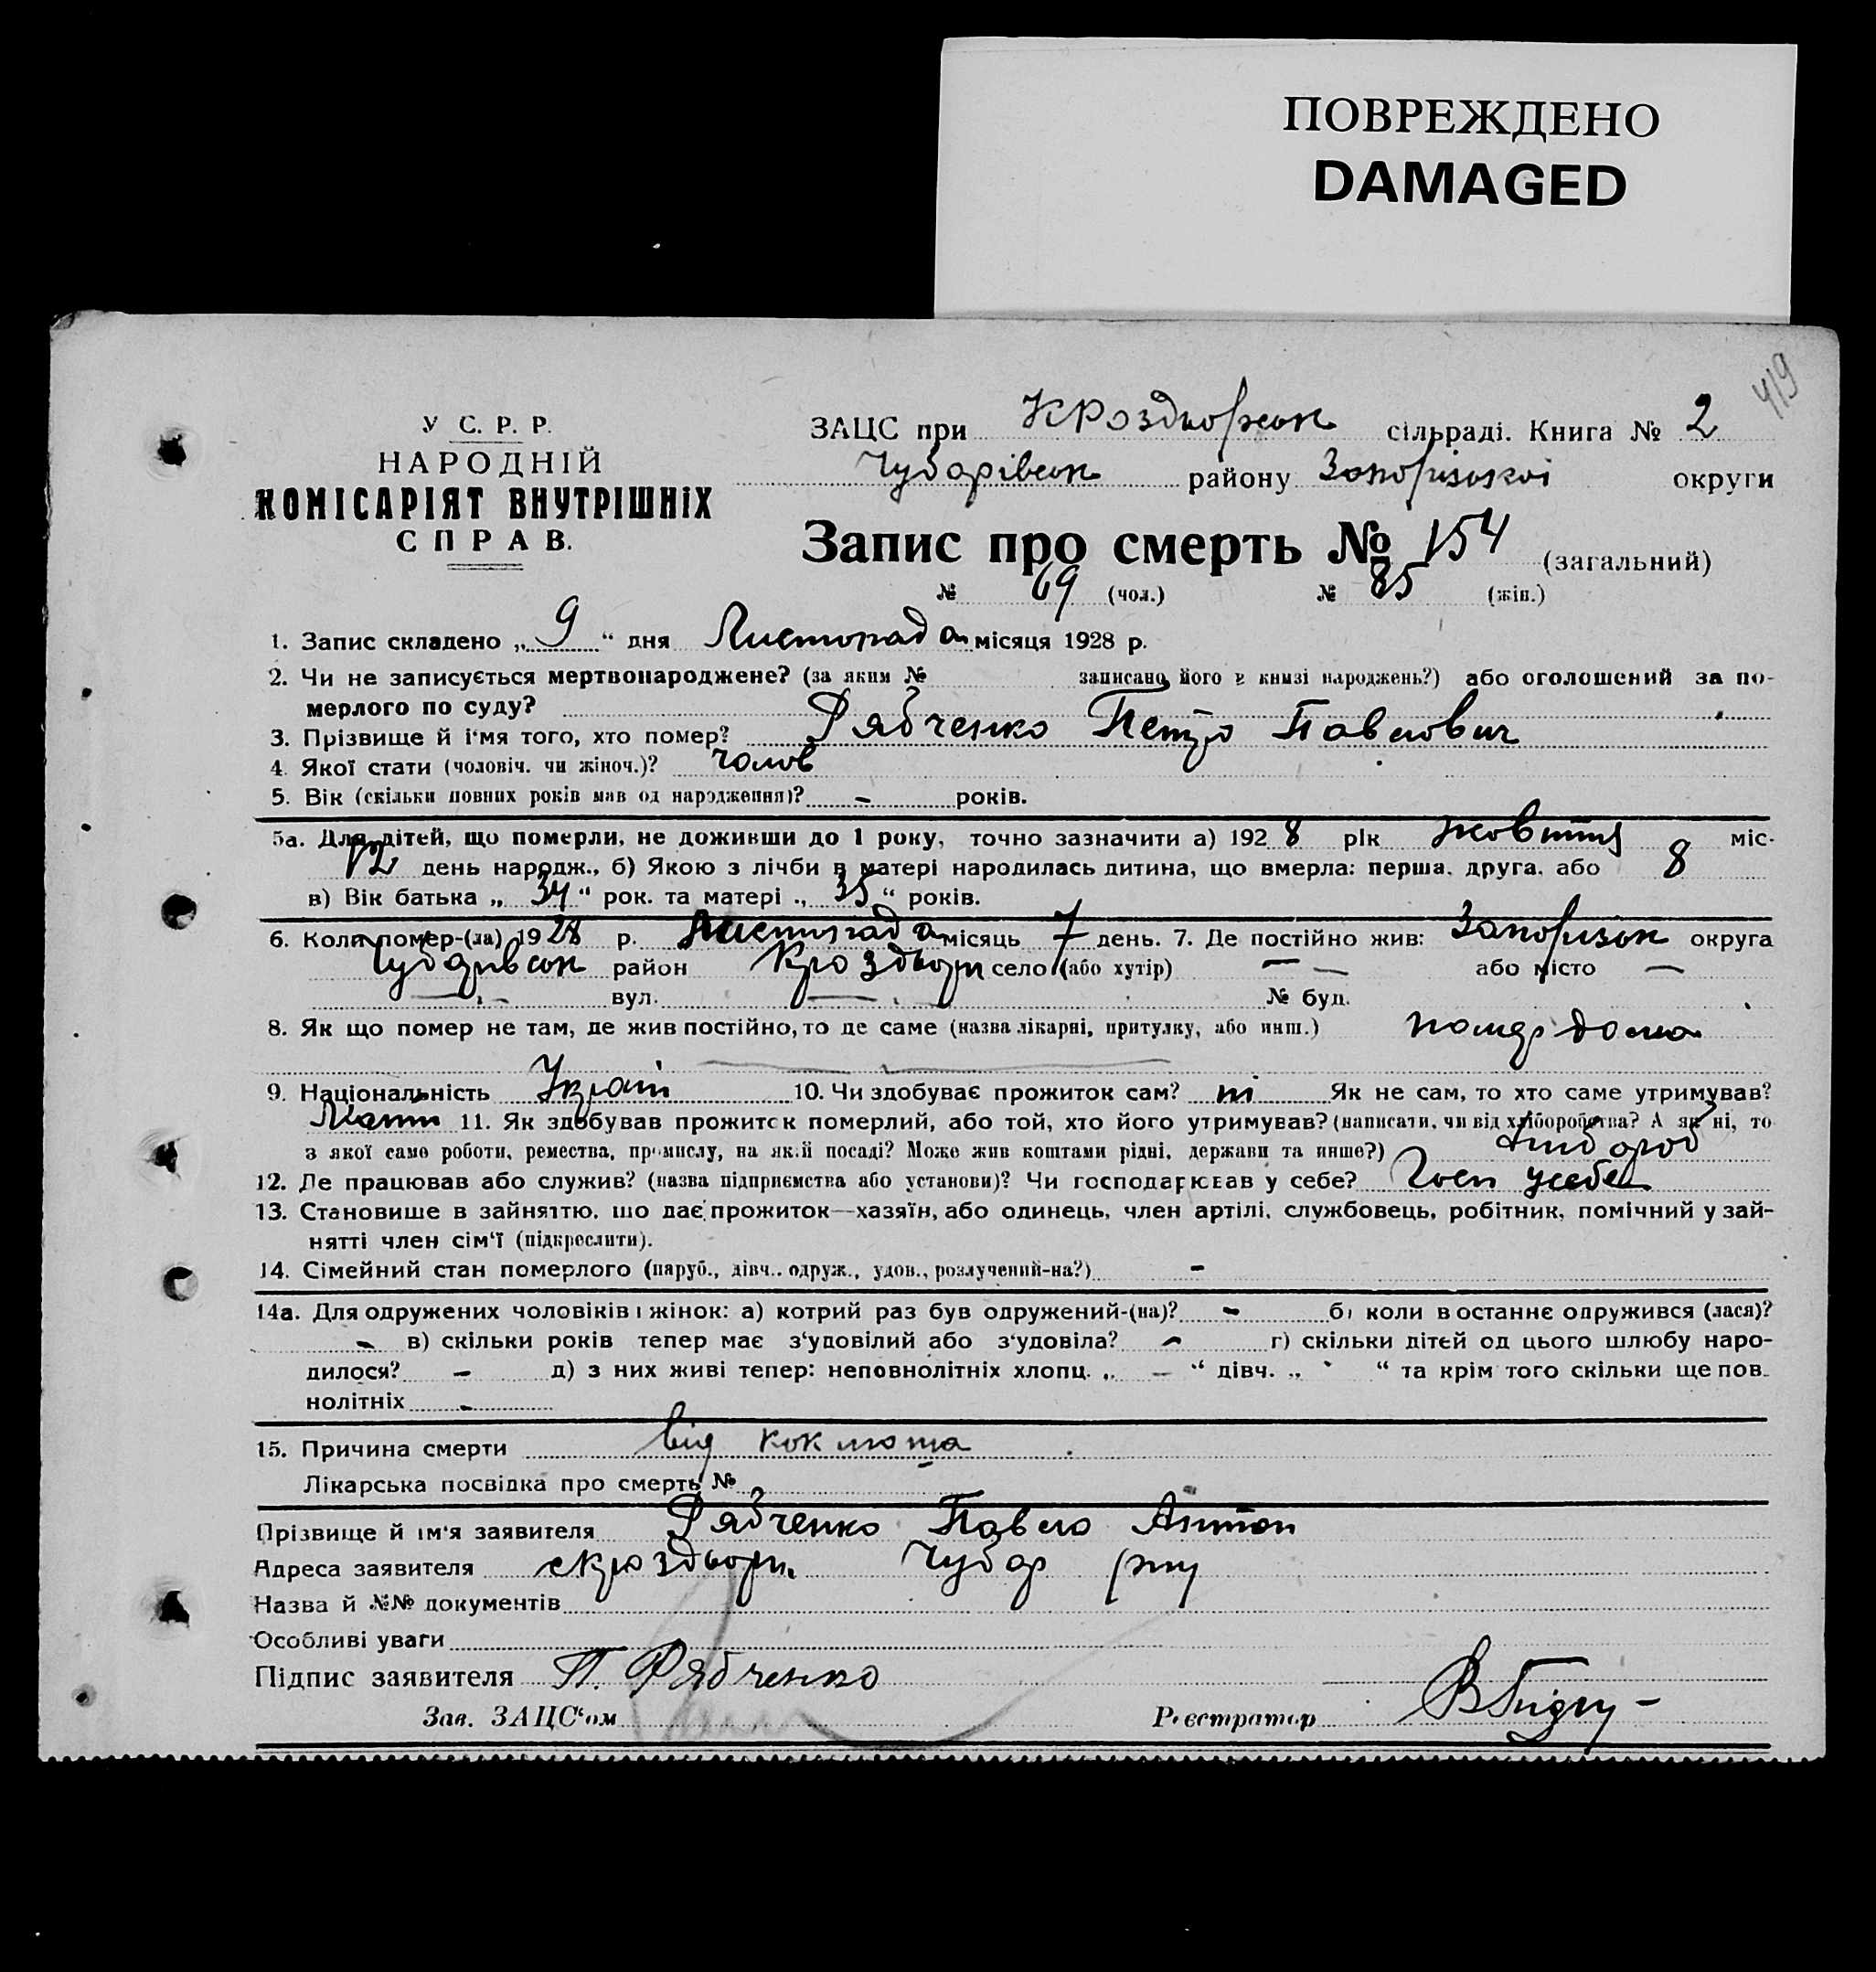 ПОВРЕЖДЕНО
DAMAGED
419
У С. Р. Р.
НАРОДНІЙ
КОМІСАРІЯТ ВНУТРІШНІХ
СПРАВ.
ЗАЦС при Кроздворсок сільраді. Книга № 2
Чубарівсок району Запорізокої округи
Запис про смерть № 154 (загальний)
№ 69 (чол.) № 85 (жін.)
1. Запис складено „ 9 “ дня Листопада місяця 1928 р.
2. Чи не записується мертвонароджене? (за яким № записано його в книзі народжень?) або оголошений за по-
мерлого по суду?
3. Прізвище й і‘мя того, хто помер? Рябченко Петро Павлович
4. Якої стати (чоловіч. чи жіноч.)? чолов
5. Вік (скільки повних років мав од народження)? - років.
5а. Для дітей, що померли, не доживши до 1 року, точно зазначити а) 192 8 рік жовтня міс.
12 день народж., б) Якою з лічби в матері народилась дитина, що вмерла: перша, друга, або 8
в) Вік батька „ 34 “ рок. та матері „ 35 “ років.
6. Коли помер-(ла) 19 28 р. Листопада місяць 7 день. 7. Де постійно жив: Запорізок округа
Чубарівсок район Кроздвори село (або хутір) — — або місто —
— вул. — № буд.
8. Як що помер не там, де жив постійно, то де саме (назва лікарні, притулку, або инш.) помер дома
9. Національність Україн 10. Чи здобуває прожиток сам? ні Як не сам, то хто саме утримував?
Мати 11. Як здобував прожиток померлий, або той, хто його утримував? (написати, чи від хліборобства? А як ні, то
з якої само роботи, ремества, промислу, на якій посаді? Може жив коштами рідні, держави та инше?) хлібороб
12. Де працював або служив? (назва підприємства або установи)? Чи господарював у себе? Госп усебе
13. Становище в зайняттю, що дає прожиток—хазяїн, або одинець, член артілі, службовець, робітник, помічний у зай-
нятті член сім‘ї (підкреслити).
14. Сімейний стан померлого (паруб., дівч., одруж., удов., розлучений-на?) -
14а. Для одружених чоловіків і жінок: а) котрий раз був одружений-(на)? - б) коли востаннє одружився (лася)?
- в) скільки років тепер має з‘удовілий або з‘удовіла? - г) скільки дітей од цього шлюбу наро-
дилося? - д) з них живі тепер: неповнолітніх хлопц. „ — “ дівч. „ “ та крім того скільки ще пов-
нолітніх -
15. Причина смерти від коклюша
Лікарська посвідка про смерть №
Прізвище й ім‘я заявителя Рябченко Павло Антон
Адреса заявителя с Кроздвори Чубар рну
Назва й №№ документів
Особливі уваги
Підпис заявителя П. Рябченко
Зав. ЗАЦС‘ом Реєстратор